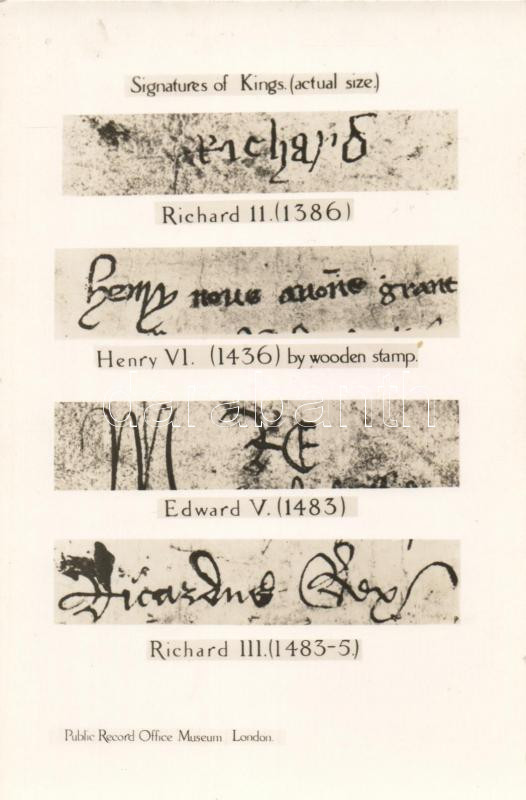 Signatures of Kings. (actual size.)
Richard
Richard II. (1386)
henry nous avons grant
Henry VI. (1436) by wooden stamp.
RE
Edward V. (1483)
Ricardus Rex
Richard III. (1483-5.)
darabanth
Public Record Office Museum London.